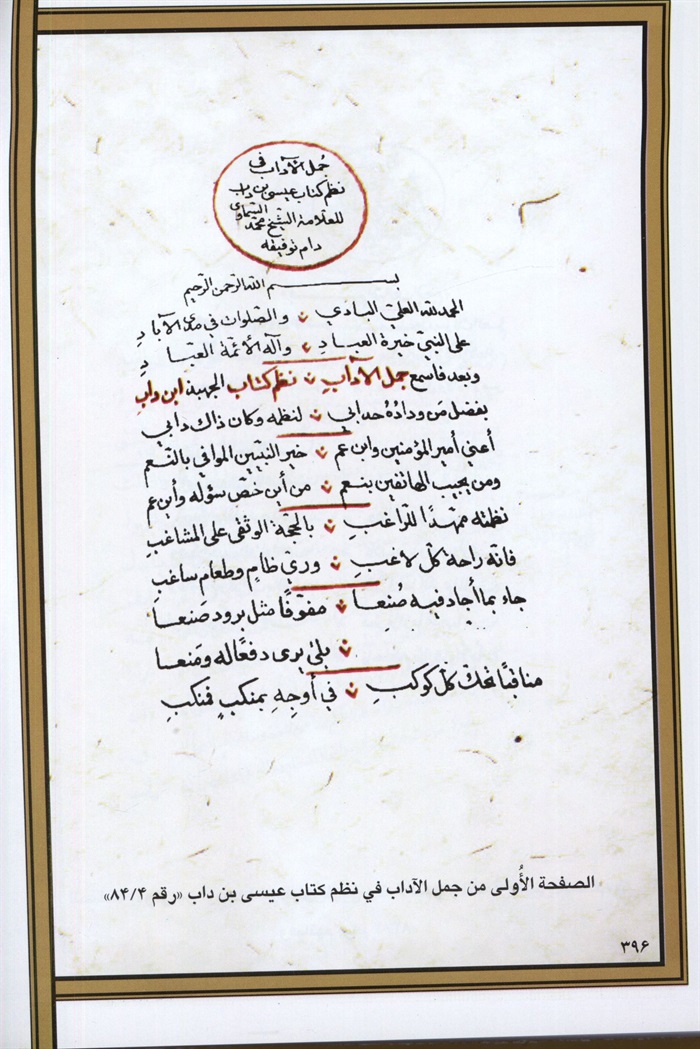 جُمل الآداب في
نظم كتاب عيسى بن داب
للعلامة الشيخ محمد السماوي
دام توفيقه
بسم الله الرحمن الرحيم
الحمد لله العليّ البادي ؞ والصلوات في مدى الآبادِ
على النبيّ خيرة العبادِ ؞ وآله الأئمّة العبادِ
وبعد فاسمع جمل الآدابِ ؞ نظم كتاب الجهبذ ابن دابِ
بفضل مَن ودادُهُ حدا بي ؞ لنظمه وكان ذاك دابي
أعني أمير المؤمنين وابن عم ؞ خير النبيّين الموافي بالنّعم
ومن يجيب الهاتفين بنعم ؞ من أين خصّ سؤله وأين عم
نظمته ممهّدًا للرّاغبِ ؞ بالحجّة الوثقى على المشاغبِ
فانّه راحة كلّ لاغبِ ؞ وريّ ظامٍ وطعام ساغبِ
جاء بما أجاد فيه صُنعا ؞ مفوّفًا مثل برود صَنعا
؞ يرى دفعًا له ومنعا
مناقبًا تحكّ كلّ كوكبِ ؞ في أوجِهِ بمنكبٍ فمنكبِ
الصفحة الأُولى من جمل الآداب في نظم كتاب عيسى بن داب «رقم ٨۴/۴»
٣٩۶